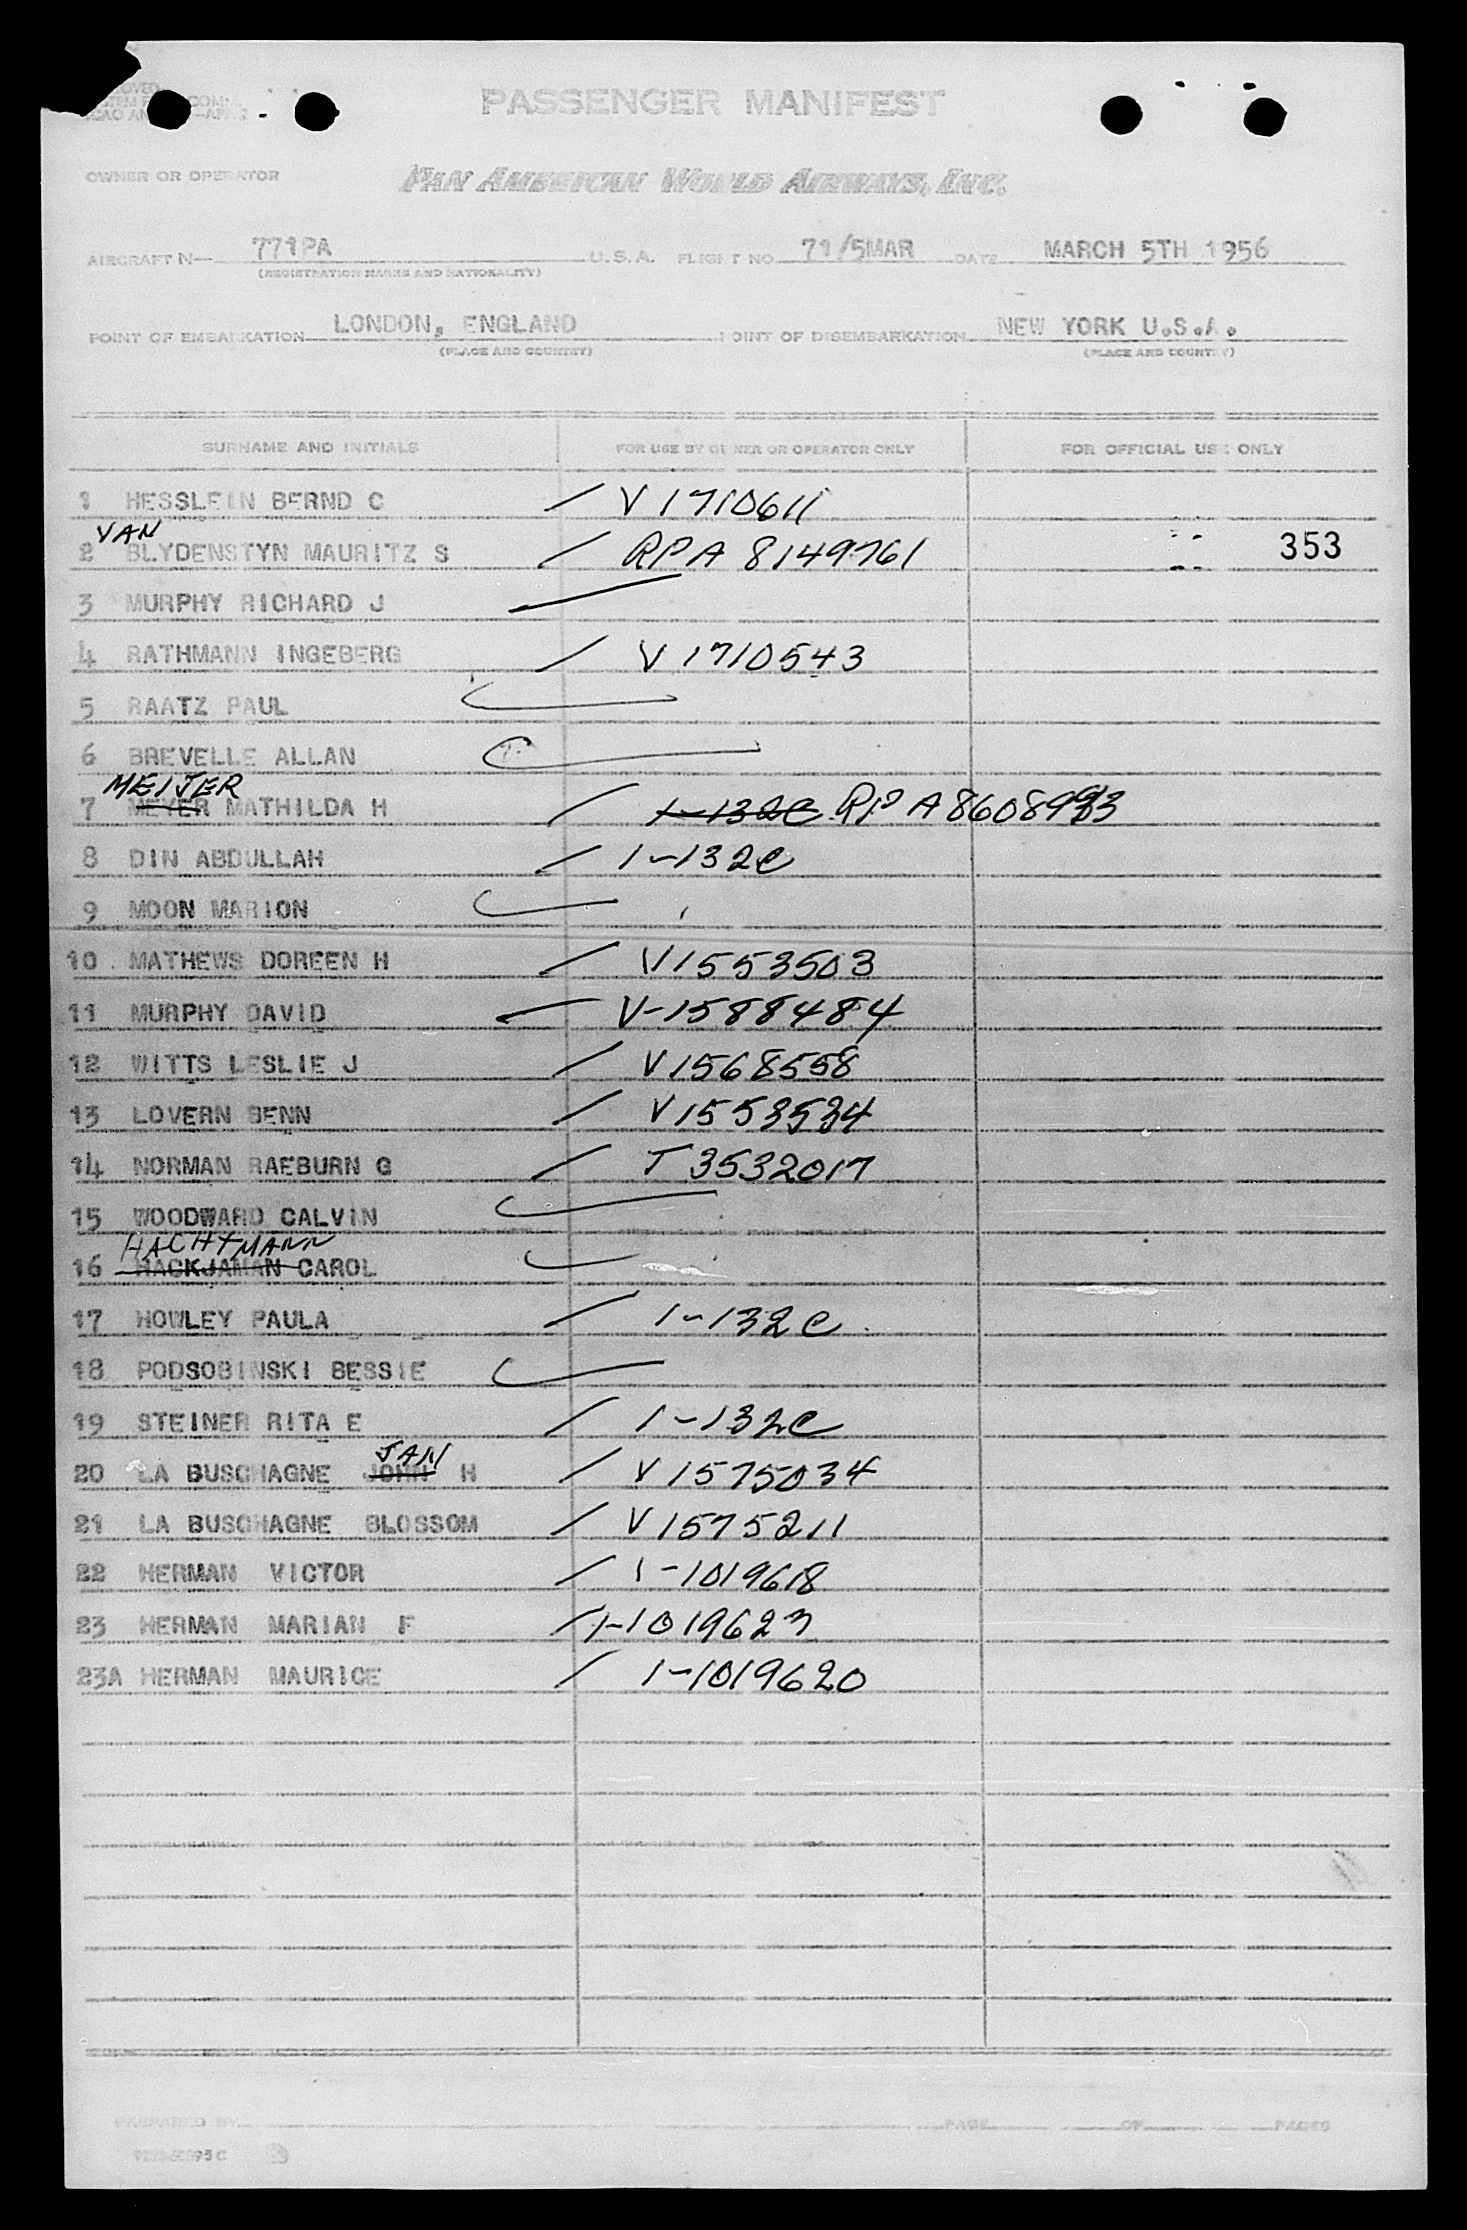 PASSENGER MANIFEST
OWNER OR OPERATOR PAN AMERICAN WORLD AIRWAYS, INC.
AIRCRAFT N— 771PA U.S.A. FLIGHT NO. 71/5MAR DATE MARCH 5TH 1956
(REGISTRATION MARKS AND NATIONALITY)
POINT OF EMBARKATION LONDON, ENGLAND POINT OF DISEMBARKATION NEW YORK U.S.A.
(PLACE AND COUNTRY) (PLACE AND COUNTRY)
SURNAME AND INITIALS FOR USE BY OWNER OR OPERATOR ONLY FOR OFFICIAL USE ONLY
1 HESSLEIN BERND C / V1710611
VAN
2 BLYDENSTYN MAURITZ S / RPA 8149761 353
3 MURPHY RICHARD J
4 RATHMANN INGEBERG / V 1710543
5 RAATZ PAUL
6 BREVELLE ALLAN
MEIJER
7 MEYER MATHILDA H / 1-132C RP A8608993
8 DIN ABDULLAH / 1-132C
9 MOON MARION
10 MATHEWS DOREEN H / V1553503
11 MURPHY DAVID V-1588484
12 WITTS LESLIE J / V1568558
13 LOVERN BENN / V1553534
14 NORMAN RAEBURN G / T 3532017
15 WOODWARD CALVIN
HACHTMANN
16 HACKJAMAN CAROL
17 HOWLEY PAULA / 1-132C
18 PODSOBINSKI BESSIE
19 STEINER RITA E / 1-132C
JAN
20 LA BUSCHAGNE JOHN H / V 1575034
21 LA BUSCHAGNE BLOSSOM / V 1575211
22 HERMAN VICTOR / 1-1019618
23 HERMAN MARIAN F / 1-1019623
23A HERMAN MAURICE / 1-1019620
PREPARED BY PAGE OF PAGES